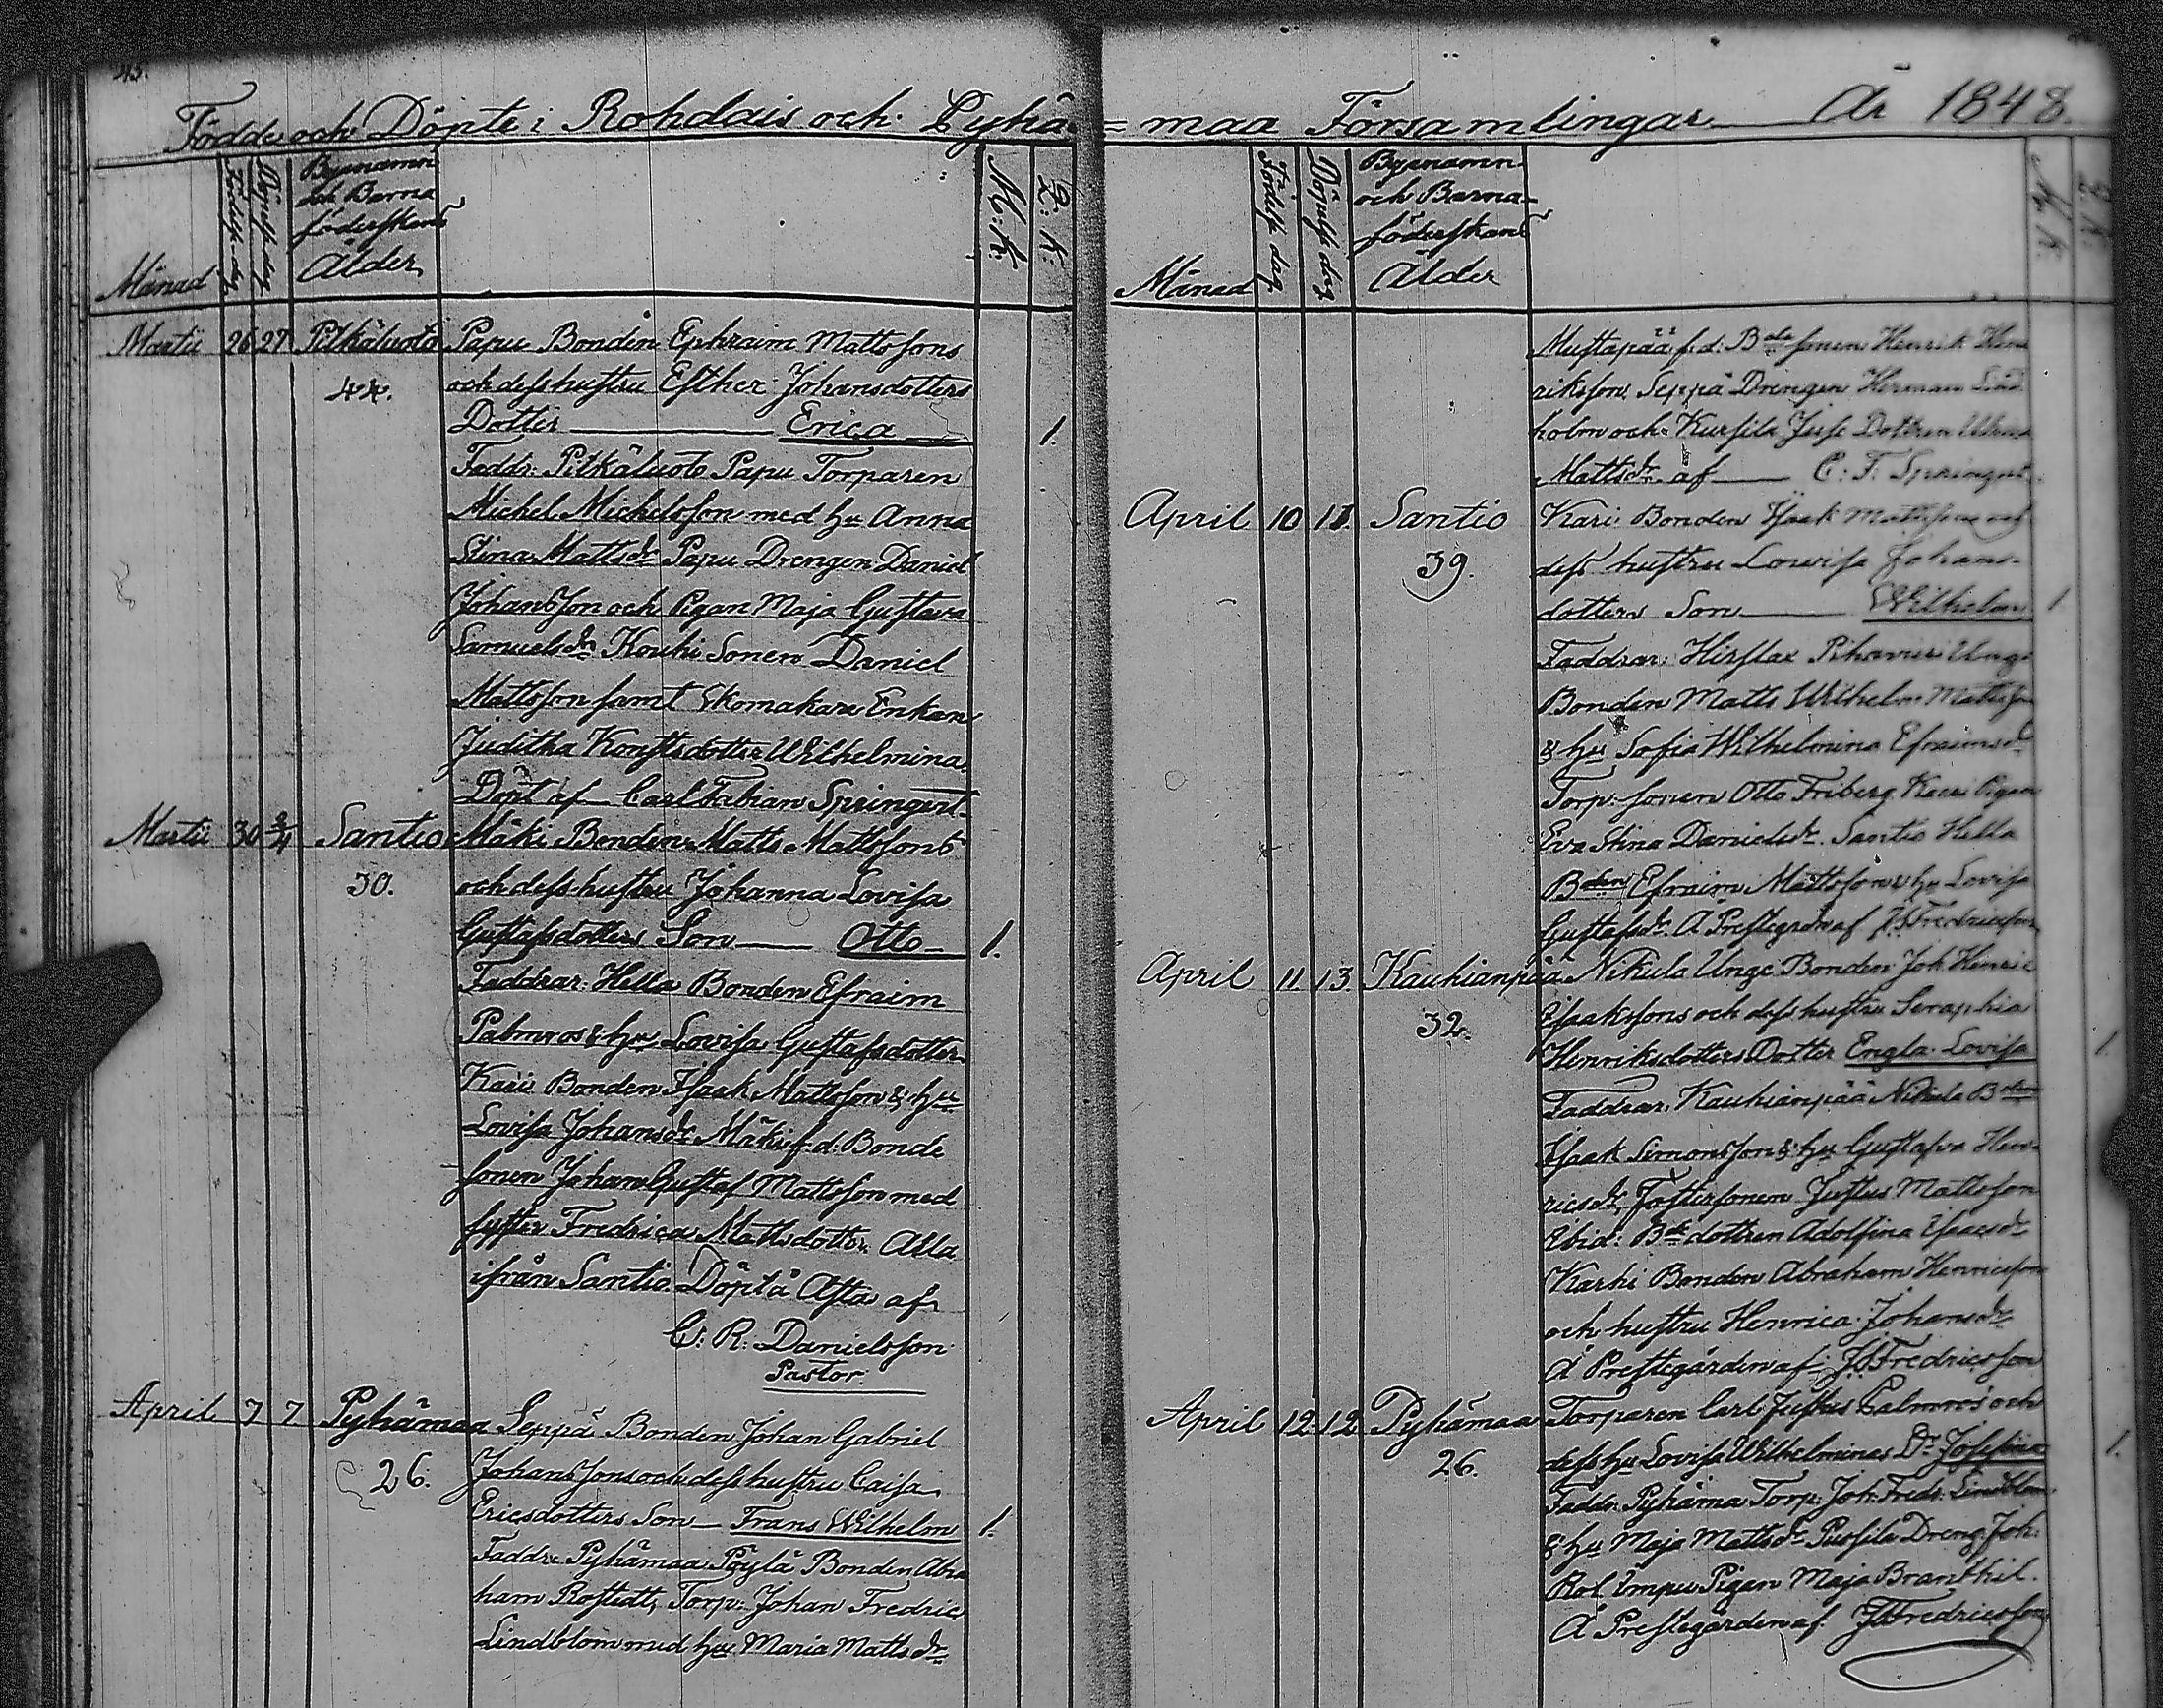 Födde och Döpte i Rohdais och Pyhä=maa Församlingar År 1848.
Månad
Födelse dag
Döpelse dag
Byanamn
och Barna
föderskans
Ålder
M: K:
Q: K:
Martii 26 27 Pitkäluoto Papu Bonden Ephraim Mattssons
44. och dess hustru Esther Johansdotters
Dotter Erica 1.
Faddr: Pitkäluoto Papu Torparen
Michel Michelsson med hu Anna
Stina Mattsdr Papu Drengen Daniel
Johansson och Pigan Maja Gustava
Samuelsdr Kouhi Sonen Daniel
Mattsson samt Skomakare Enkan
Juditha Wilhelmina
Döpt af Carl Fabian Springert.
Martii 30 2/4 Santio Mäki Bonden Matts Mattssons
30. och dess hustru Johanna Lovisa
Gustafsdotters Son Otto 1.
Faddrar: Hella Bonden Efraim
Palmros & hu Lovisa Gustafsdotter
Kari Bonden Isaak Mattsson & hu
Lovisa Johansdr Mäki f.d. Bonde
sonen Johan Gustaf Mattsson med
syster Fredrica Mattsdotter Alla
ifrån Santio. Döpt å af
C: R: Danielsson
Pastor.
April 7 7 Pyhämaa Seppä Bonden Johan Gabriel
26. Johanssons och dess hustru Caisa
Ericsdotters Son Frans Wilhelm 1.
Faddr: Pyhämaa Pöylä Bonden Abra
ham Rostedt, Torp: Johan Fredric
Lindblom med hu Maria Mattsdr
Månad
Födelse dag
Döpelse dag
Byanamn
och Barna-
föderskans
Ålder
Mustapää f.d: Bde sonen Henrik Hen
riksson, Seppä Drengen Herman Lind
holm och Dottren
Mattsdr af C: F: Springert.
April 10 11. Santio Kari Bonden Isaak Mattssons och
39. dess hustru Lowisa Johans-
dotters Son Wilhelm 1
Faddrar: Unge
Bonden Matts Wilhelm Mattsson
& hu Sofia Wilhelmina Efraimsdr
Torp: sonen Otto Friberg Kari Pigan
Eva Stina Danielsdr. Santio Hella
Bden Efraim Mattsson & hu Lovisa
Gustafsdr. Å Prestegården af JFredricsson
April 11 13. Kauhianpää Nikula Unge Bonden Joh Henric
32. Isaakssons och dess hustru Seraphia
Henriksdotters Dotter Engla Lovisa 1
Faddrar, Kauhianpää Nikula Bden
Isaak Simonsson & hu Gustafva Hen-
ricsdr, Fostersonen Justus Mattsson
Ibid: Bde dottren Adolfina Isacsdr
Karhi Bonden Abraham Henricsson
och hustru Henrica Johansdr
Å Prestegården af JFredricsson
April 12 12 Pyhämaa Torparen Carl Justus Palmros och
26. dess hu Lovisa Wilhelminas Dr Josefina 1.
Faddr: Pyhäma Torp: Joh: Fredr: Lindblom
& hu Maja Mattsdr Dreng: Joh:
Pigan Maja Branthil.
Å Prestegården af. JFredricsson